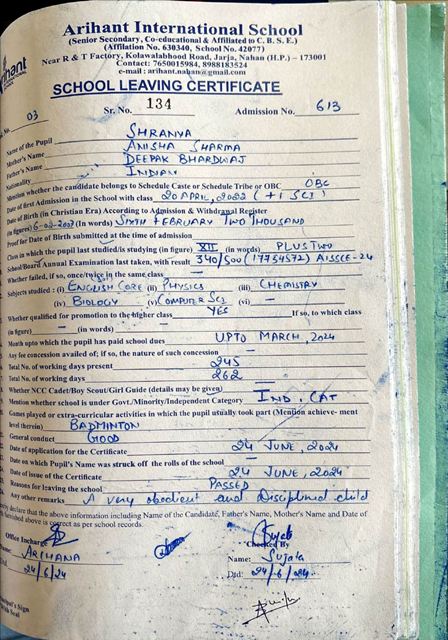 Arihant International School
(Senior Secondary, Co-educational & Affiliated to C. B. S. E.)
(Affilation No. 630340, School No. 42077)
Near R & T Factory, Kolawalabhood Road, Jarja, Nahan (H.P.) – 173001
Contact: 7650015984, 8988183524
e-mail : arihant.nahan@gmail.com
SCHOOL LEAVING CERTIFICATE
03 Sr. No. 134 Admission No. 613
Name of the Pupil SHRANYA
Mother's Name ANISHA SHARMA
Father's Name DEEPAK BHARDWAJ
Nationality INDIAN
Mention whether the candidate belongs to Schedule Caste or Schedule Tribe or OBC OBC
Date of first Admission in the School with class 20 APRIL, 2022 (+1 SCI)
Date of Birth (in Christian Era) According to Admission & Withdrawal Register
(in figures) 6-02-2007 (In words) SIXTH FEBRUARY TWO THOUSAND
Proof for Date of Birth submitted at the time of admission
Class in which the pupil last studied/is studying (in figure) XII (in words) PLUS TWO
School/Board Annual Examination last taken, with result 340/500 (17754572) AISSCE-24
Whether failed, if so, once/twice in the same class —
Subjects studied : (i) ENGLISH CORE (ii) PHYSICS (iii) CHEMISTRY
(iv) BIOLOGY (v) COMPUTER SCI (vi) —
Whether qualified for promotion to the higher class YES If so, to which class
(in figure) — (in words)
Month upto which the pupil has paid school dues UPTO MARCH, 2024
Any fee concession availed of; if so, the nature of such concession —
Total No. of working days present 245
Total No. of working days 262
Whether NCC Cadet/Boy Scout/Girl Guide (details may be given) —
Mention whether school is under Govt./Minority/Independent Category IND. CAT
Games played or extra-curricular activities in which the pupil usually took part (Mention achieve- ment
level therein) BADMINTON
General conduct GOOD
Date of application for the Certificate 24 JUNE, 2024
Date on which Pupil's Name was struck off the rolls of the school —
Date of issue of the Certificate 24 JUNE, 2024
Reasons for leaving the school PASSED
Any other remarks A very obedient and Disciplined child
declare that the above information including Name of the Candidate, Father's Name, Mother's Name and Date of
furnished above is correct as per school records.
Office Incharge Checked By
Name: ARCHANA Name: Sujata
24/6/24 Dtd: 24/6/24